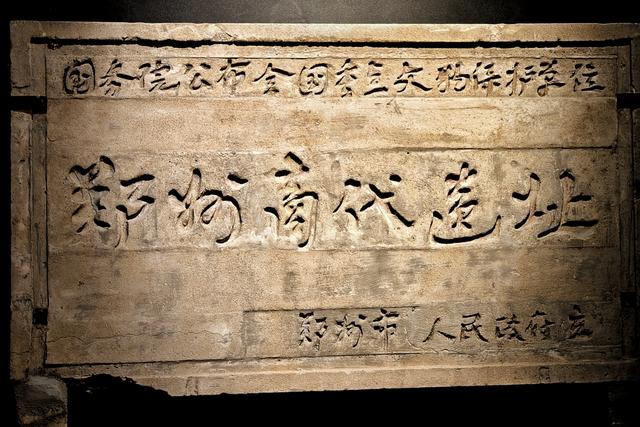 国务院公布全国重点文物保护单位
郑州商代遗址
郑州市人民政府立